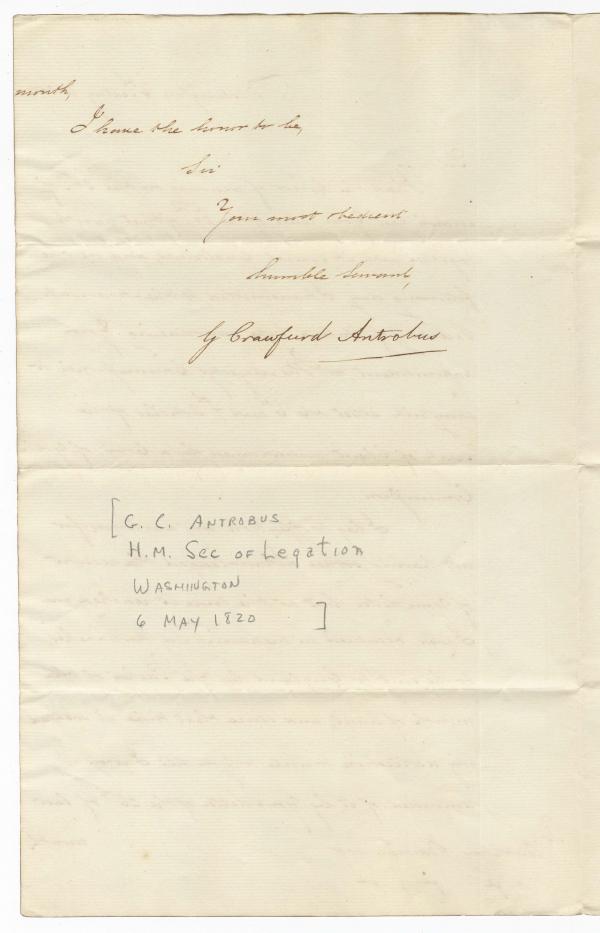 month,
I have the honor to be,
Sir
Your most obedient
humble Servant,
G Crawfurd Antrobus
[G. C. ANTROBUS
H.M. Sec of Legation
WASHINGTON
6 MAY 1820 ]